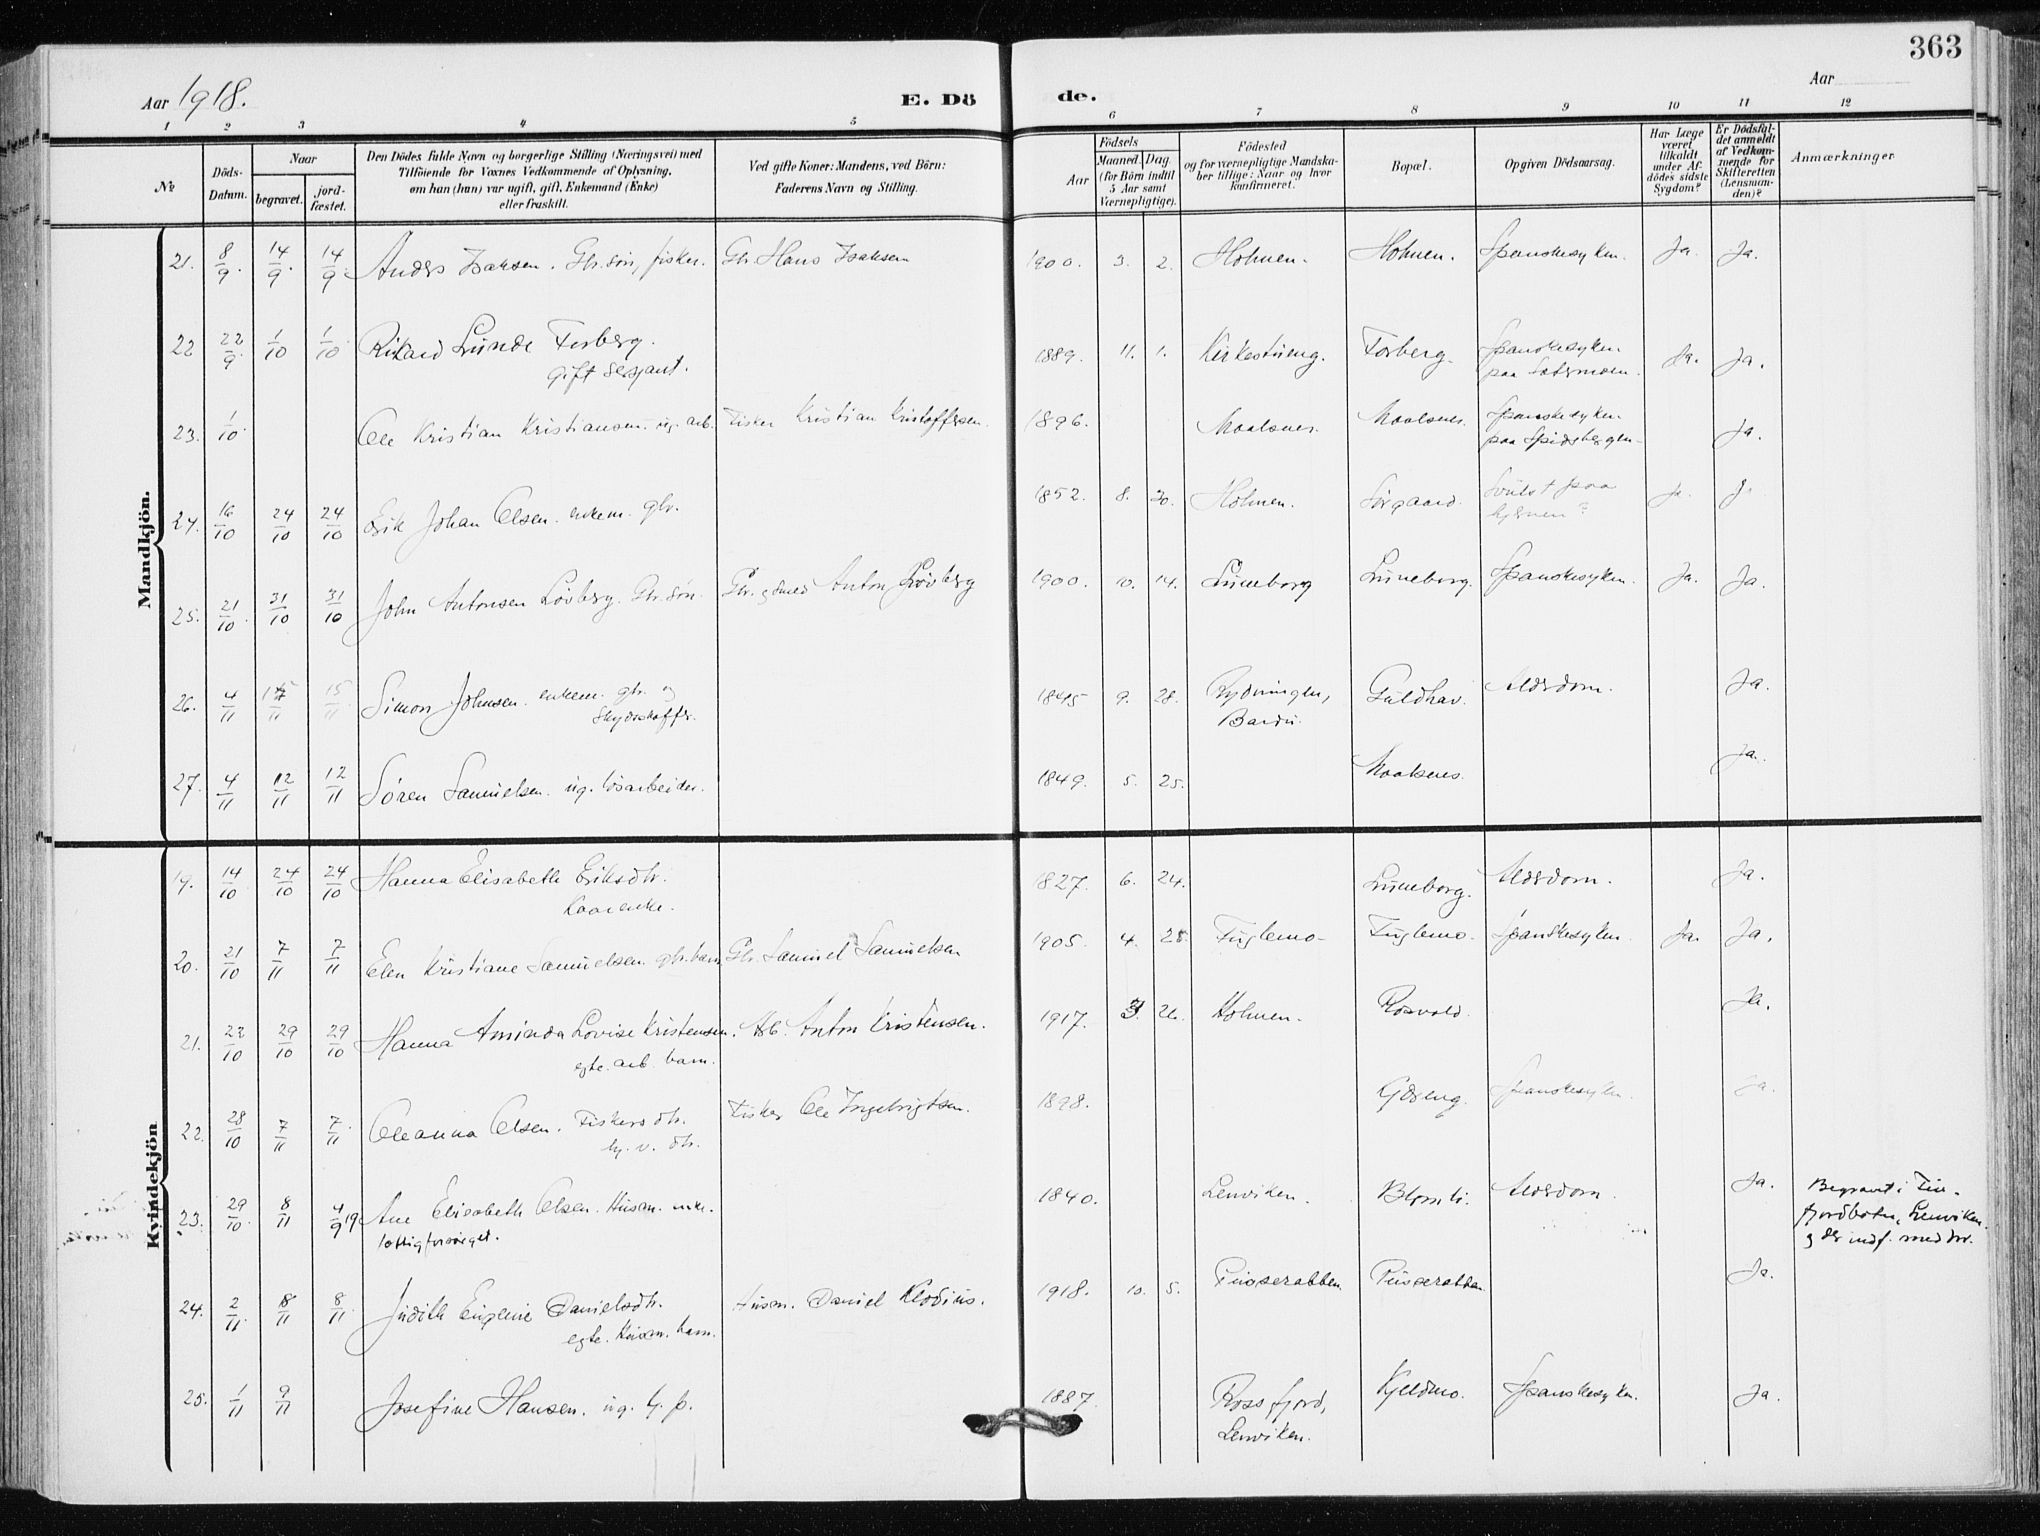 363
Aar 1918.
E. Dö de.
Aar
1 2 3 4 5 6 7 8 9 10 11 12
№
Döds-Datum.
Naar
begravet.
jord-fæstet.
Den Dödes fulde Navn og borgerlige Stilling (Næringsvei) med
Tilföiende for Voxnes Vedkommende af Oplysning,
om han (hun) var ugift, gift, Enkemand (Enke)
eller fraskilt.
Ved gifte Koner: Mandens, ved Börn:
Faderens Navn og Stilling.
Födsels
Aar
Maaned. Dag.
(for Börn indtil
5 Aar samt
Værnepligtige).
Födested
og for værnepligtige Mandska-
ber tillige: Naar og hvor
konfirmeret.
Bopæl.
Opgiven Dödsaarsag.
Har Læge
været
tilkaldt
under Af-
dödes sidste
Sygdom?
Er Dödsfal-
det anmeldt
af Vedkom-
mende for
Skifteretten
(Lensman-
den)?
Anmærkninger
Mandkjön.
21. 8/9. 14/9. 14/9. Anders Isaksen. Gbr. sön, fisker. Gbr. Hans Isaksen 1900. 3. 2. Holmen. Holmen. Spanskesyken. Ja. Ja.
22 22/9. 1/10 1/10. Rikard Lunde Forberg. 1889. 11. 1. Kirkestueng. Forberg. Spanskesyken Ja. Ja.
gift sersjant. paa Sætermoen.
23. 1/10. Ole Kristian Kristiansen. ug. arb. Fisker Kristian Kristoffersen. 1896. Maalsnes. Maalsnes. Spanskesyken Ja.
paa Spidsbergen
24. 16/10 24/10 24/10 Erik Johan Olsen. enkem. gbr. 1852. 8. 20. Holmen. Sörgaard. Svulst paa J. J.
hjernen?
25. 21/10. 31/10 31/10 John Antonsen Lövberg. Gbr. sön. Gbr. & smed Anton Lövberg 1900. 10. 14. Luneborg Luneborg. Spanskesyken. Ja. Ja.
26. 4/11 15/11 15/11 Simon Johnsen. enkem. gbr. og 1845 9. 28. Rydningen, Guldhav. Alderdom. Ja.
Skydsskaffer. Bardu.
27. 4/11 12/11 12/11 Sören Samuelsen. ug. lösarbeider. 1849. 5. 25. Maalsnes. Ja.
Kvindekjön
19. 14/10 24/10 24/10 Hanna Elisabeth Eriksdtr. 1827. 6. 24. Luneborg. Alderdom. Ja.
Kaarenke.
20. 21/10 7/11 7/11 Elen Kristiane Samuelsen. gbr. barn. Gbr. Samuel Samuelsen 1905. 4. 25. Fuglemo. Fuglemo. Spanskesyken. Ja. Ja.
21. 23/10 29/10 29/10 Hanna Aminda Lovise Kristensen. Arb. Anton Kristensen. 1917. 3. 26. Holmen. Rosvold. Ja.
egte. arb. barn.
22. 28/10 7/11 7/11. Oleanna Olsen. Fiskersdtr. Fisker Ole Ingebrigtsen. 1898. Gjæreng. Spanskesyken. Ja.
hj. v. dtr.
23. 29/10. 8/11 4/9 19 Ane Elisabeth Olsen. Husm. enke. 1840. Lenviken. Blomli. Alderdom. Ja. Begravet i Fin-
fattigforsörget. fjordbotn, Lenviken.
& der indf. med dnr.
24. 2/11. 8/11 8/11. Judith Eugenie Danielsdtr. Husm. Daniel Klodius. 1918. 10. 5. Finserabben. Finserabben. Ja.
egte. Husm. barn.
25. 1/11 9/11 Josefine Hansen. ug. hj. p. 1887. Rossfjord, Kjeldmo. Spanskesyken. Ja.
Lenviken.